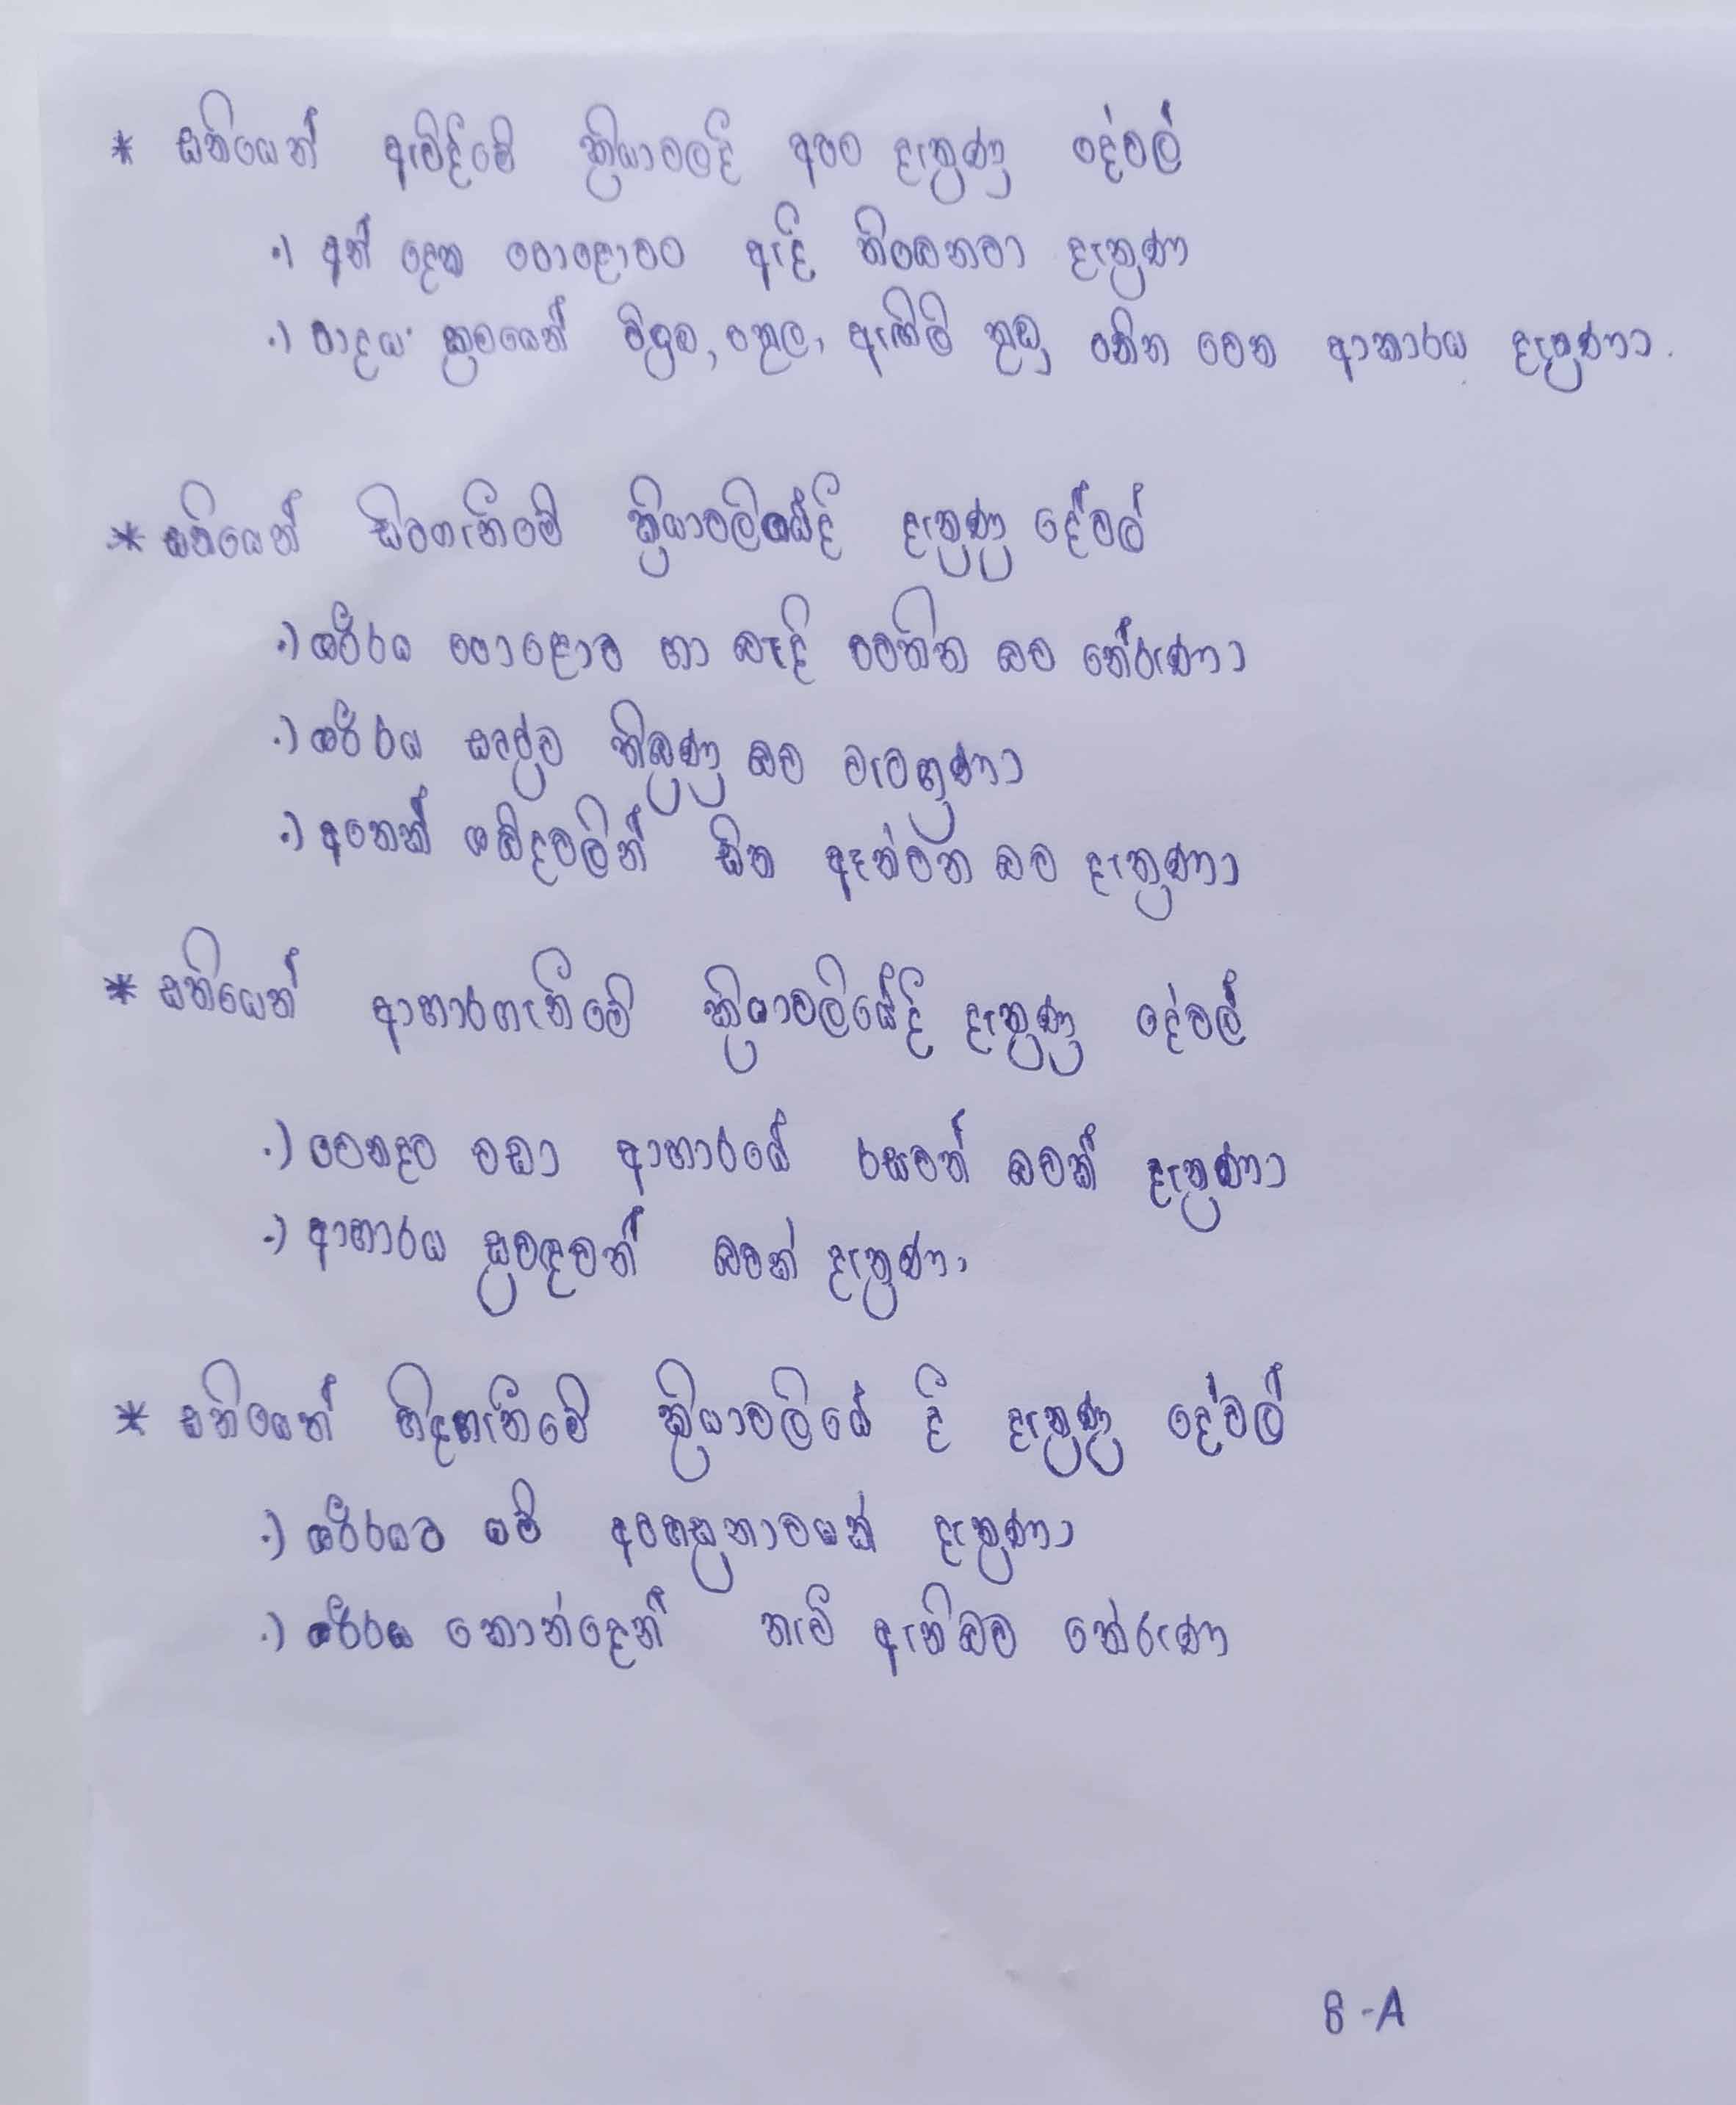 * සතියෙන් ඇවිදීමේ ක්‍රියාවලදී අපට දැනුණු දේවල්
·) අත් දෙක පොළොවට ඇදී තිබෙනවා දැනුණා
·) පාදය ක්‍රමයෙන් විලුඹ, පතුල, ඇඟිලි තුඩු පතිත වෙන ආකාරය දැනුණා.
* සතියෙන් සිටගැනීමේ ක්‍රියාවලියේදී දැනුණු දේවල්
·) ශරීරය පොළොව හා බැඳී පවතින බව තේරුණා
·) ශරීරය සෘජුව තිබුණු බව වැටහුණා
·) අනෙක් ශබ්දවලින් සිත ඈත්වන බව දැනුණා
* සතියෙන් ආහාරගැනීමේ ක්‍රියාවලියේදී දැනුණු දේවල්
·) වෙනදට වඩා ආහාරයේ රසවත් බවක් දැනුණා
·) ආහාරය සුවඳවත් බවක් දැනුණා
* සතියෙන් හිඳගැනීමේ ක්‍රියාවලියේ දී දැනුණු දේවල්
·) ශරීරයට යම් අපහසුතාවයක් දැනුණා
·) ශරීරය කොන්දෙන් නැවී ඇතිබව තේරුණා
8 -A